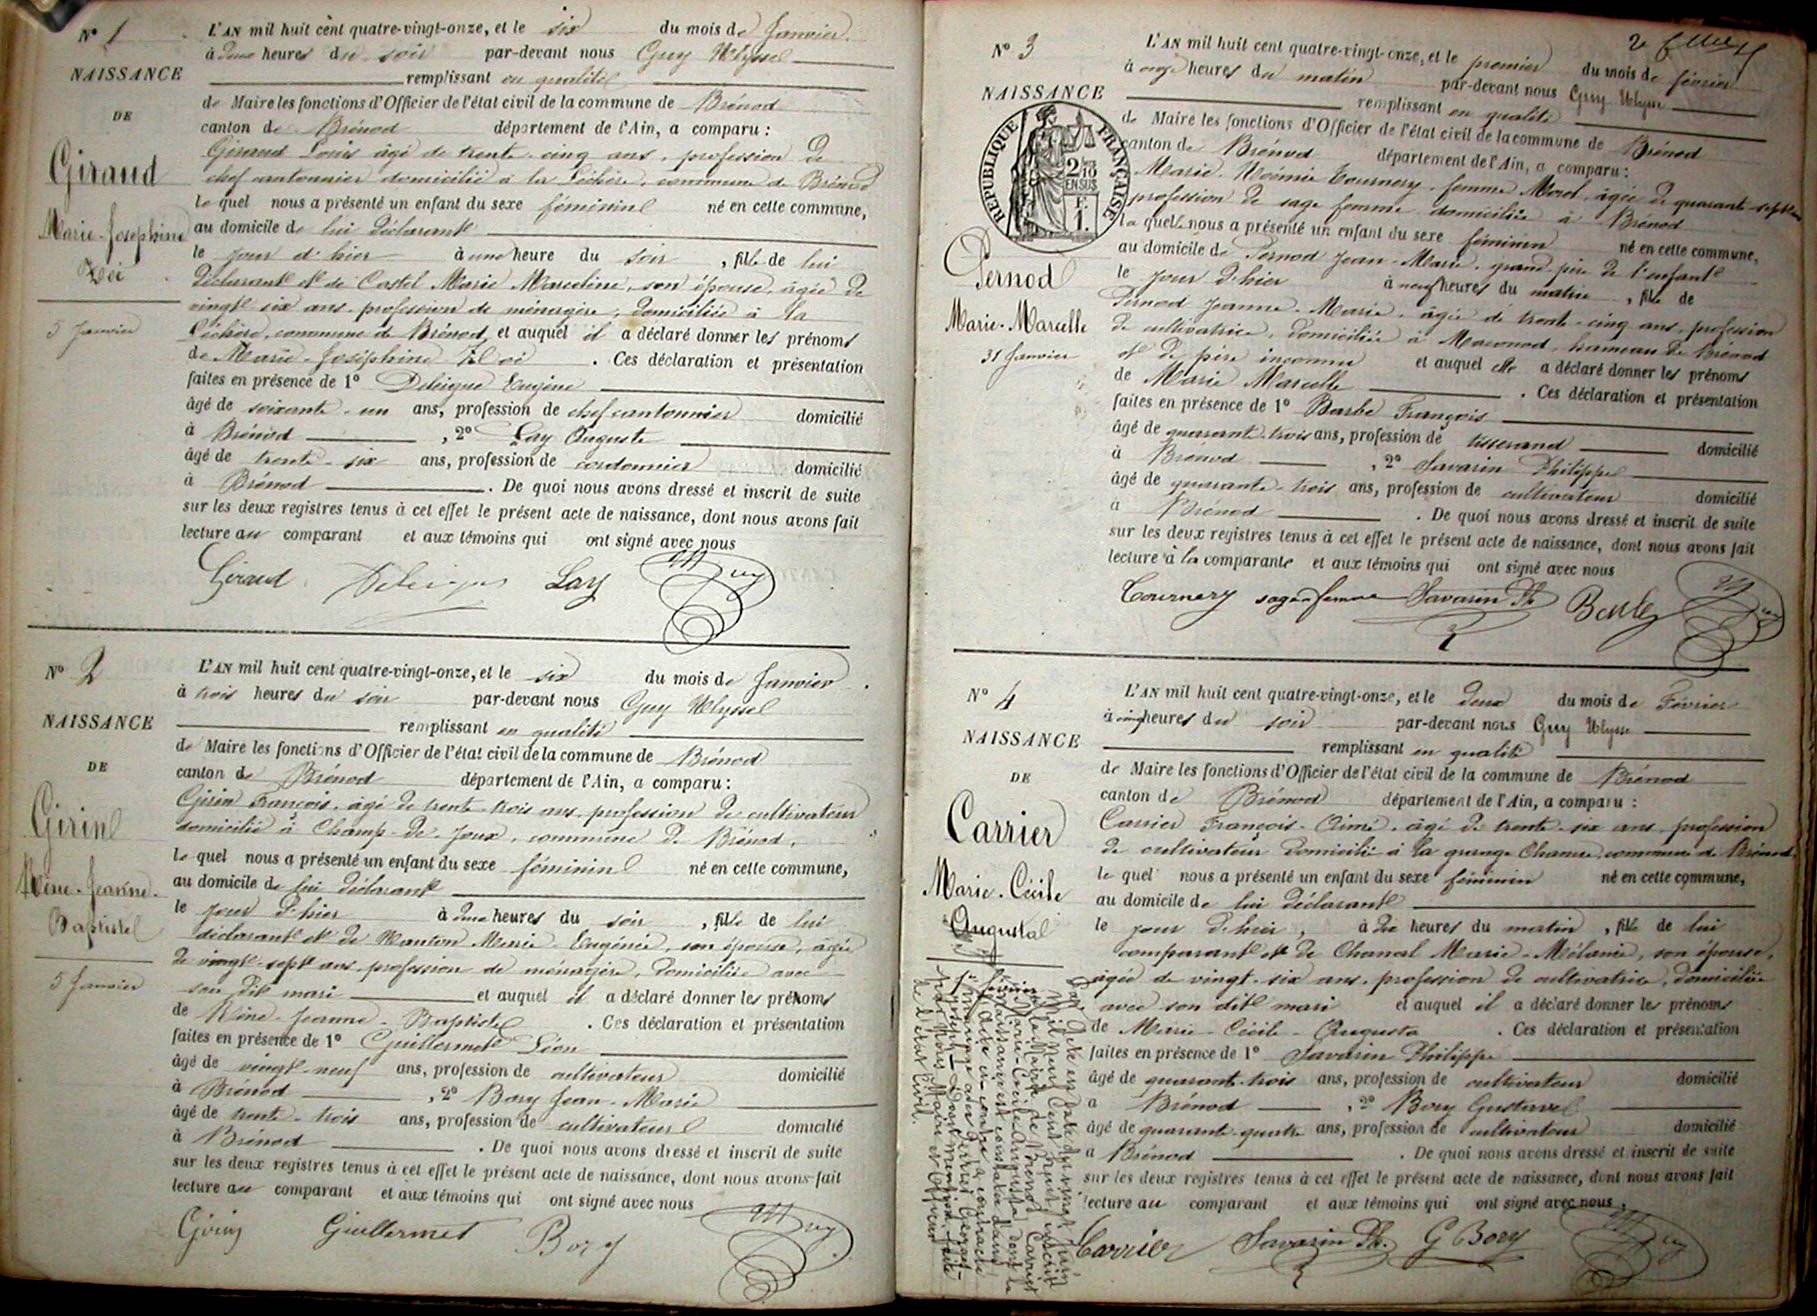 N° 1
NAISSANCE
DE
Giraud
Marie-Joséphine
5 Janvier
L'AN mil huit cent quatre-vingt-onze, et le six du mois de Janvier
à deux heures du soir par-devant nous Guy Ulysse
remplissant en qualité
de Maire les fonctions d'Officier de l'état civil de la commune de Brénod
canton de Brénod département de l'Ain, a comparu :
Giraud Louis âgé de trente-cinq ans, profession de
chef cantonnier domicilié à la Léchère, commune de Brénod
Le quel nous a présenté un enfant du sexe féminin né en cette commune,
au domicile de lui déclarant
le jour d'hier à une heure du soir, fille de lui
déclarant et de Costel Marie Marceline, son épouse, âgée de
vingt six ans, profession de ménagère, domiciliée à la
Léchère, commune de Brénod, et auquel il a déclaré donner les prénoms
de Marie-Joséphine . Ces déclaration et présentation
faites en présence de 1° Eugène
âgé de soixante-un ans, profession de chef cantonnier domicilié
à Brénod , 2° Lay Auguste
âgé de trente-six ans, profession de cordonnier domicilié
à Brénod . De quoi nous avons dressé et inscrit de suite
sur les deux registres tenus à cet effet le présent acte de naissance, dont nous avons fait
lecture au comparant et aux témoins qui ont signé avec nous
Giraud Lay Guy
N° 2
NAISSANCE
DE
Girin
Jeanne-
Baptistel
5 Janvier
L'AN mil huit cent quatre-vingt-onze, et le six du mois de Janvier
à trois heures du soir par-devant nous Guy Ulysse
remplissant en qualité
de Maire les fonctions d'Officier de l'état civil de la commune de Brénod
canton de Brénod département de l'Ain, a comparu :
Girin François, âgé de trente-trois ans, profession de cultivateur
domicilié à Champ-de-Joux, commune de Brénod,
Le quel nous a présenté un enfant du sexe féminin né en cette commune,
au domicile de lui déclarant
le jour d'hier à deux heures du soir, fille de lui
déclarant et de Manton Marie-Eugénie, son épouse, âgée
de vingt-sept ans, profession de ménagère, domiciliée avec
son dit mari et auquel il a déclaré donner les prénoms
de Jeanne-Baptistel . Ces déclaration et présentation
faites en présence de 1° Guillermet Léon
âgé de vingt-neuf ans, profession de cultivateur domicilié
à Brénod , 2° Bory Jean-Marie
âgé de trente-trois ans, profession de cultivateur domicilié
à Brénod . De quoi nous avons dressé et inscrit de suite
sur les deux registres tenus à cet effet le présent acte de naissance, dont nous avons fait
lecture au comparant et aux témoins qui ont signé avec nous
Girin Guillermet Bory Guy
N° 3
NAISSANCE
RÉPUBLIQUE FRANÇAISE
2/10
EN SUS
1 F.
Pernod
Marie-Marcelle
31 Janvier
L'AN mil huit cent quatre-vingt-onze, et le premier du mois de février
à onze heures du matin par-devant nous Guy Ulysse
remplissant en qualité
de Maire les fonctions d'Officier de l'état civil de la commune de Brénod
canton de Brénod département de l'Ain, a comparu :
Marie-Noémie Tournery, femme Morel, âgée de quarante-sept ans
profession de sage femme domiciliée à Brénod
La quelle nous a présenté un enfant du sexe féminin né en cette commune,
au domicile de Pernod Jean-Marie, grand-père de l'enfant
le jour d'hier à neuf heures du matin, fille de
Pernod Jeanne-Marie, âgée de trente-cinq ans, profession
de cultivatrice, domiciliée à Maconod, hameau de Brénod
et de père inconnu et auquel elle a déclaré donner les prénoms
de Marie Marcelle . Ces déclaration et présentation
faites en présence de 1° Barbe François
âgé de quarante-trois ans, profession de tisserand domicilié
à Brénod , 2° Savarin Philippe
âgé de quarante-trois ans, profession de cultivateur domicilié
à Brénod . De quoi nous avons dressé et inscrit de suite
sur les deux registres tenus à cet effet le présent acte de naissance, dont nous avons fait
lecture à la comparante et aux témoins qui ont signé avec nous
Tournery sage femme Savarin Ph Guy
N° 4
NAISSANCE
DE
Carrier
Marie-Cécile
Augusta
L'AN mil huit cent quatre-vingt-onze, et le deux du mois de Février
à cinq heures du soir par-devant nous Guy Ulysse
remplissant en qualité
de Maire les fonctions d'Officier de l'état civil de la commune de Brénod
canton de Brénod département de l'Ain, a comparu :
Carrier François-Aimé, âgé de trente-six ans, profession
de cultivateur domicilié à la grange Chanue, commune de Brénod
Le quel nous a présenté un enfant du sexe féminin né en cette commune,
au domicile de lui déclarant
le jour d'hier, à dix heures du matin, fille de lui
comparant et de Chanal Marie-Mélanie, son épouse,
âgée de vingt-six ans, profession de cultivatrice, domiciliée
avec son dit mari et auquel il a déclaré donner les prénoms
de Marie-Cécile-Augusta . Ces déclaration et présentation
faites en présence de 1° Savarin Philippe
âgé de quarante-trois ans, profession de cultivateur domicilié
à Brénod , 2° Bory Gustave
âgé de quarante-quatre ans, profession de cultivateur domicilié
à Brénod . De quoi nous avons dressé et inscrit de suite
sur les deux registres tenus à cet effet le présent acte de naissance, dont nous avons fait
lecture au comparant et aux témoins qui ont signé avec nous,
Carrier Savarin Ph. G Bory Guy